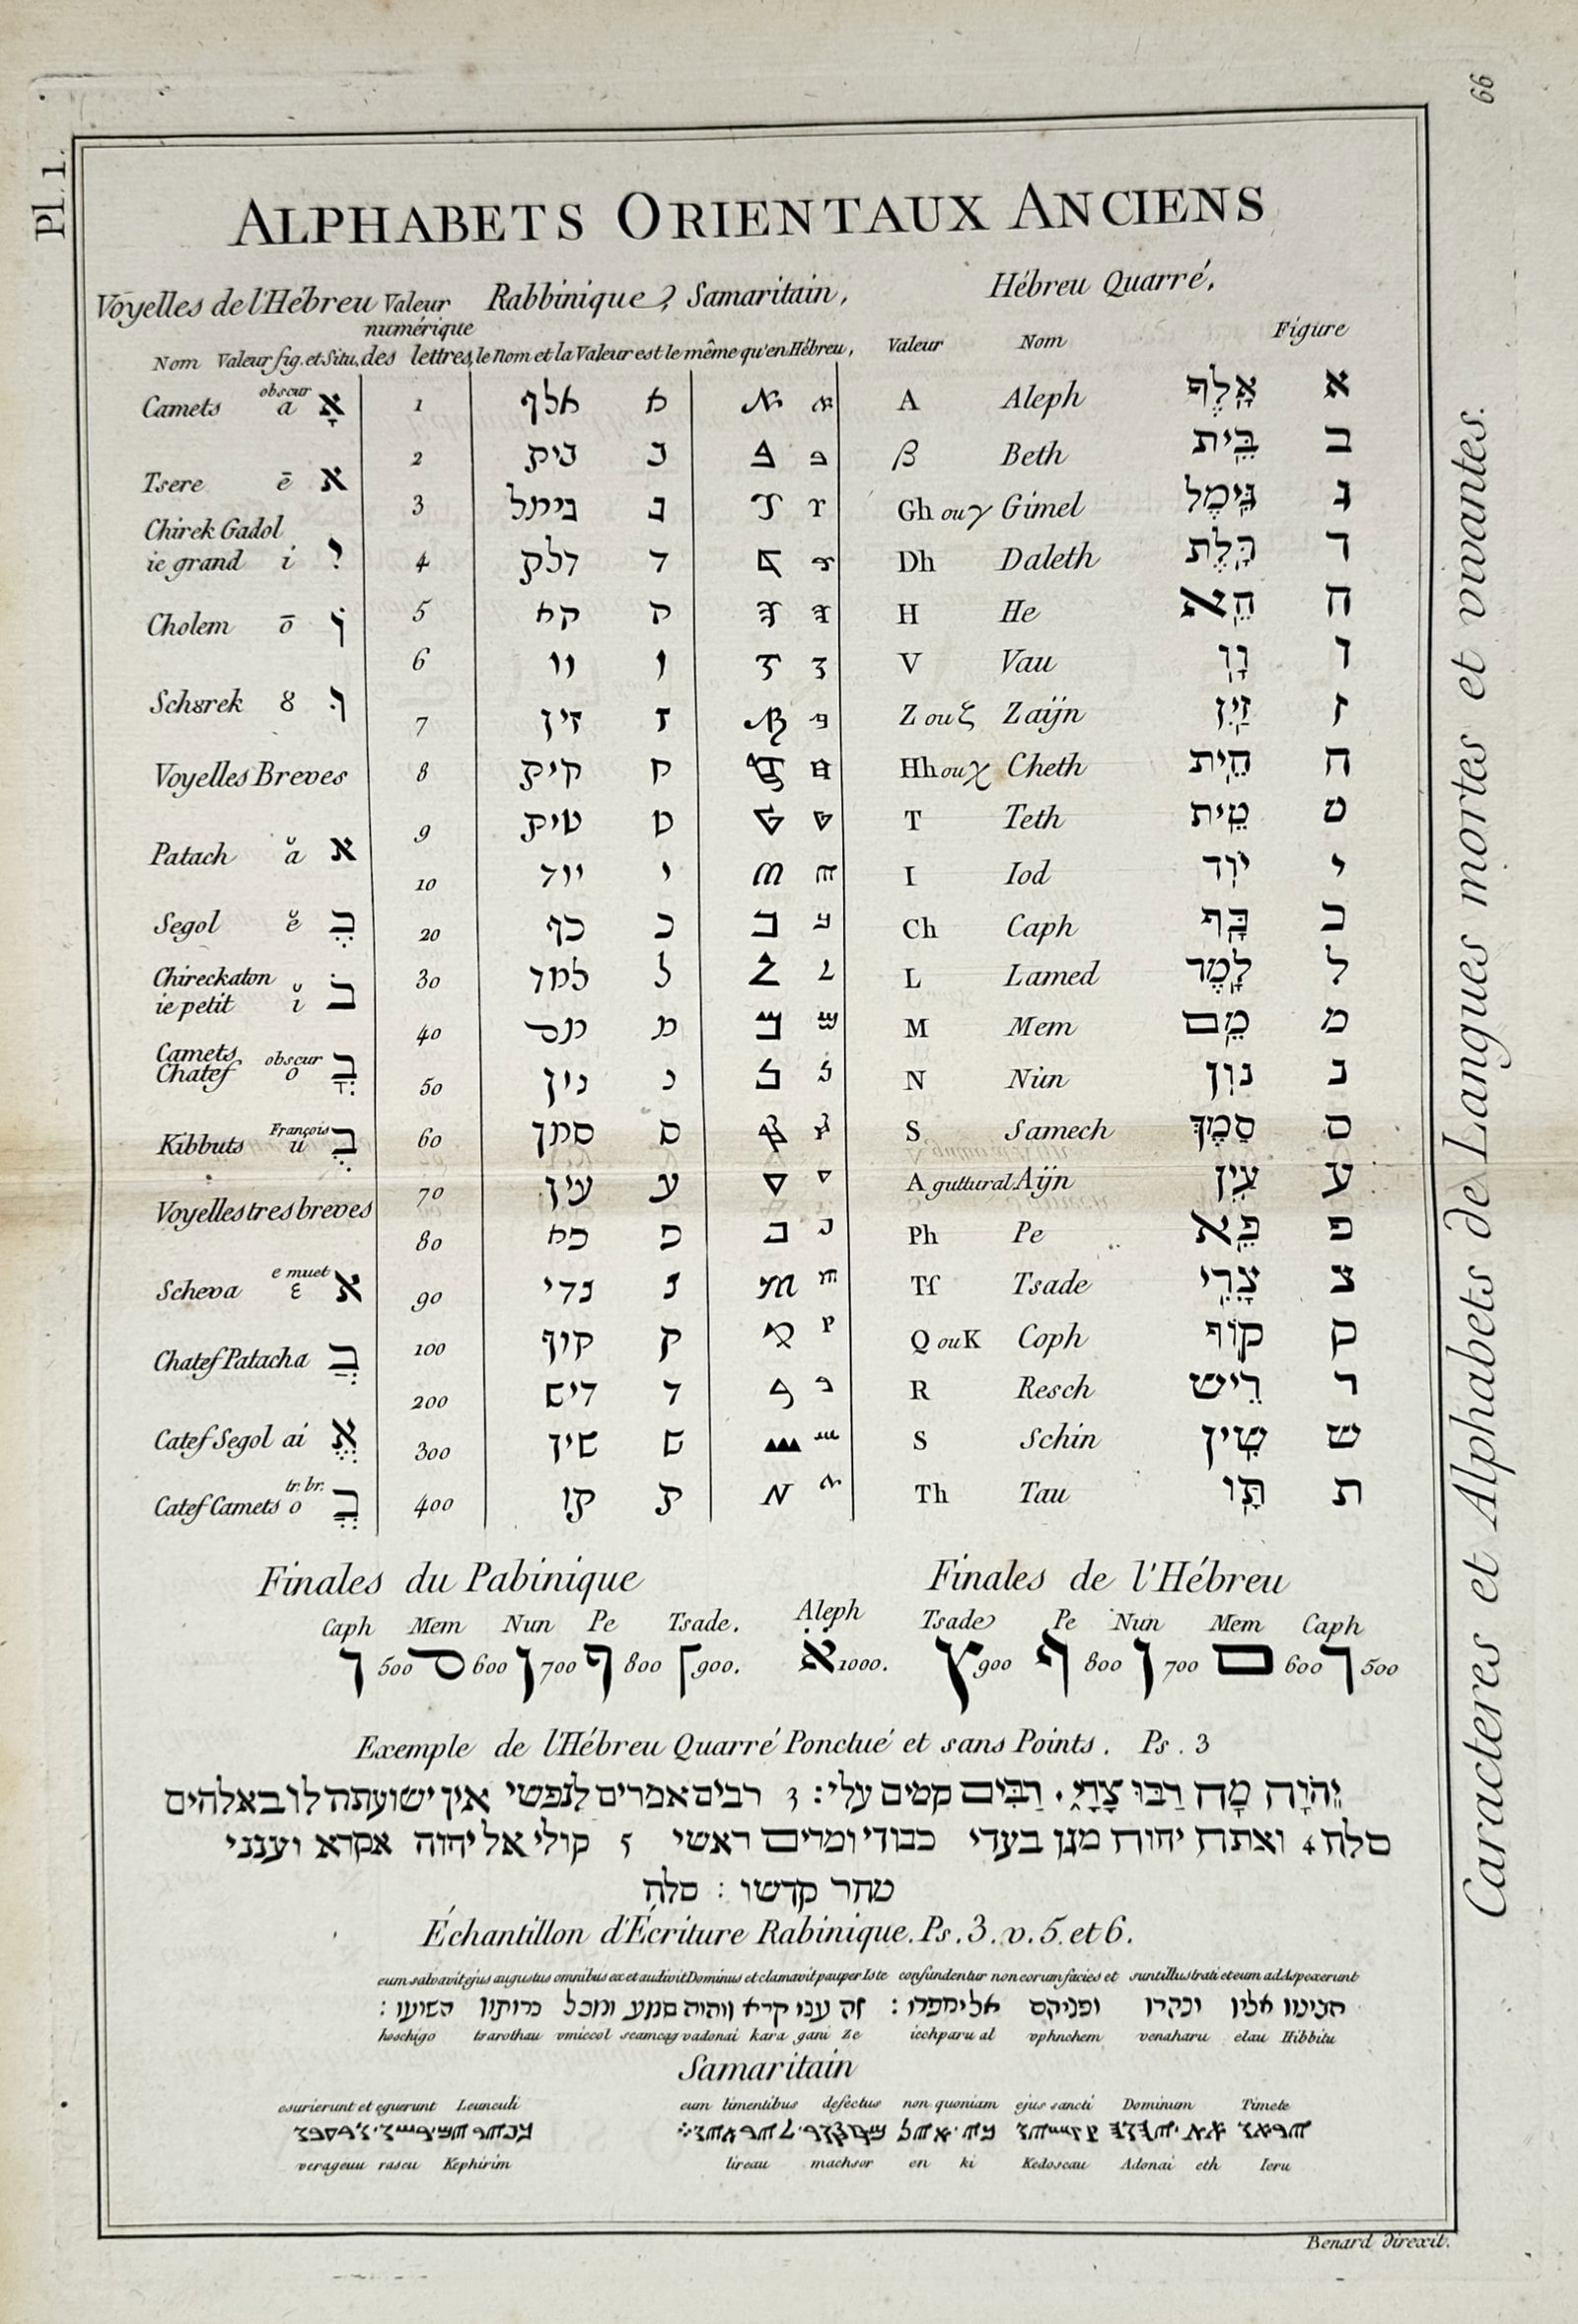 Pl. 1.
66
ALPHABETS ORIENTAUX ANCIENS
Voyelles de l'Hébreu Valeur numérique des lettres, Rabbinique, Samaritain, Hébreu Quarré,
Nom Valeur fig. et Situ. le Nom et la Valeur est le même qu'en Hébreu, Valeur Nom Figure
Camets obscur a אָ 1 אלף א A Aleph אָלֶף א
2 בית ב β Beth בֵּית ב
Tsere ē א 3 גימל ג Gh ou γ Gimel גִּימֶל ג
Chirek Gadol
ie grand i 4 דלת ד Dh Daleth דָּלֶת ד
5 הא ה H He הֵא ה
Cholem ō 6 וו ו V Vau וָו ו
Schurek 8 7 זין ז Z ou ζ Zaijn זַיִן ז
Voyelles Breves 8 חית ח Hh ou χ Cheth חֵית ח
9 טית ט T Teth טֵית ט
Patach ă א 10 יוד י I Iod יוֹד י
Segol ĕ בֶ 20 כף כ Ch Caph כָּף כ
Chireckaton
ie petit ĭ 30 למד ל L Lamed לָמֶד ל
40 מם מ M Mem מֵם מ
Camets
Chatef obscur o 50 נון נ N Nun נוּן נ
Kibbuts François u בֻ 60 סמך ס S Samech סָמֶךְ ס
Voyelles tres breves 70 עין ע A guttural Aijn עַיִן ע
80 פא פ Ph Pe פֵּא פ
Scheva e muet ε א 90 צדי צ Tſ Tsade צָדֵי צ
Chatef Patach a בֲ 100 קוף ק Q ou K Coph קוֹף ק
200 ריש ר R Resch רֵישׁ ר
Catef Segol ai אֱ 300 שין ש S Schin שִׁין ש
Catef Camets tr. br. o בֳ 400 תו ת Th Tau תָּו ת
Finales du Pabinique Finales de l'Hébreu
Caph Mem Nun Pe Tsade. Aleph Tsade Pe Nun Mem Caph
ך 500 ם 600 ן 700 ף 800 ץ 900. א 1000. ץ 900 ף 800 ן 700 ם 600 ך 500
Exemple de l'Hébreu Quarré Ponctué et sans Points. Ps. 3
יְהֹוָה מָה רַבּוּ צָרָי. רַבִּים קמים עלי: 3 רבים אמרים לנפשי אין ישועתה לו באלהים
סלה 4 ואתה יהוה מגן בעדי כבודי ומרים ראשי 5 קולי אל יהוה אקרא ויענני
מהר קדשו : סלה
Échantillon d'Écriture Rabinique. Ps. 3. v. 5. et 6.
eum salvavit ejus augustus omnibus ex et audivit Dominus et clamavit pauper Iste confundentur non eorum facies et sunt illustrati et eum ad Aspexerunt
הביטו אליו ונהרו ופניהם אל יחפרו : זה עני קרא ויהוה שמע ומכל צרותיו הושיעו :
hoschigo tsarothau vmiccol scameag vadonai kara gani ze iechparu al vphnehem venaharu elau Hibbitu
Samaritain
esurierunt et eguerunt Leunculi eum timentibus defectus non quoniam ejus sancti Dominum Timete
verageuu rascu Kephirim lireau machsor en ki Kedoseau Adonai eth Ieru
Benard direxit.
Caracteres et Alphabets de Langues mortes et vivantes.